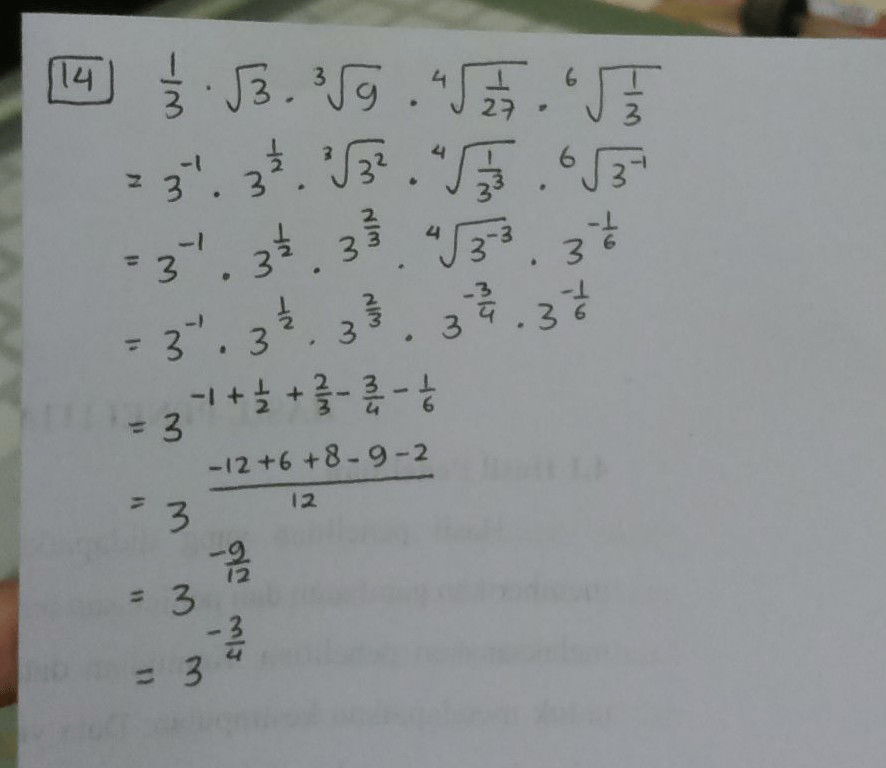 14 1/3 · √3 . ³√9 . ⁴√(1/27) . ⁶√(1/3)
= 3⁻¹ . 3^(1/2) . ³√(3²) . ⁴√(1/3³) . ⁶√(3⁻¹)
= 3⁻¹ . 3^(1/2) . 3^(2/3) . ⁴√(3⁻³) . 3^(-1/6)
= 3⁻¹ . 3^(1/2) . 3^(2/3) . 3^(-3/4) . 3^(-1/6)
= 3^(-1 + 1/2 + 2/3 - 3/4 - 1/6)
= 3^((-12 + 6 + 8 - 9 - 2)/12)
= 3^(-9/12)
= 3^(-3/4)